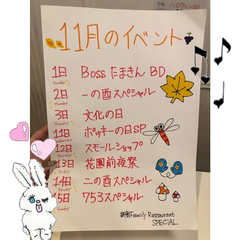 11月のイベント
1日 Boss たまきん BD
2日 一の酉スペシャル
3日 文化の日
11日 ポッキーの日SP
12日 スモールショップ
13日 花園前夜祭
14日 二の酉スペシャル
15日 753スペシャル
Family Restaurant
SPECIAL